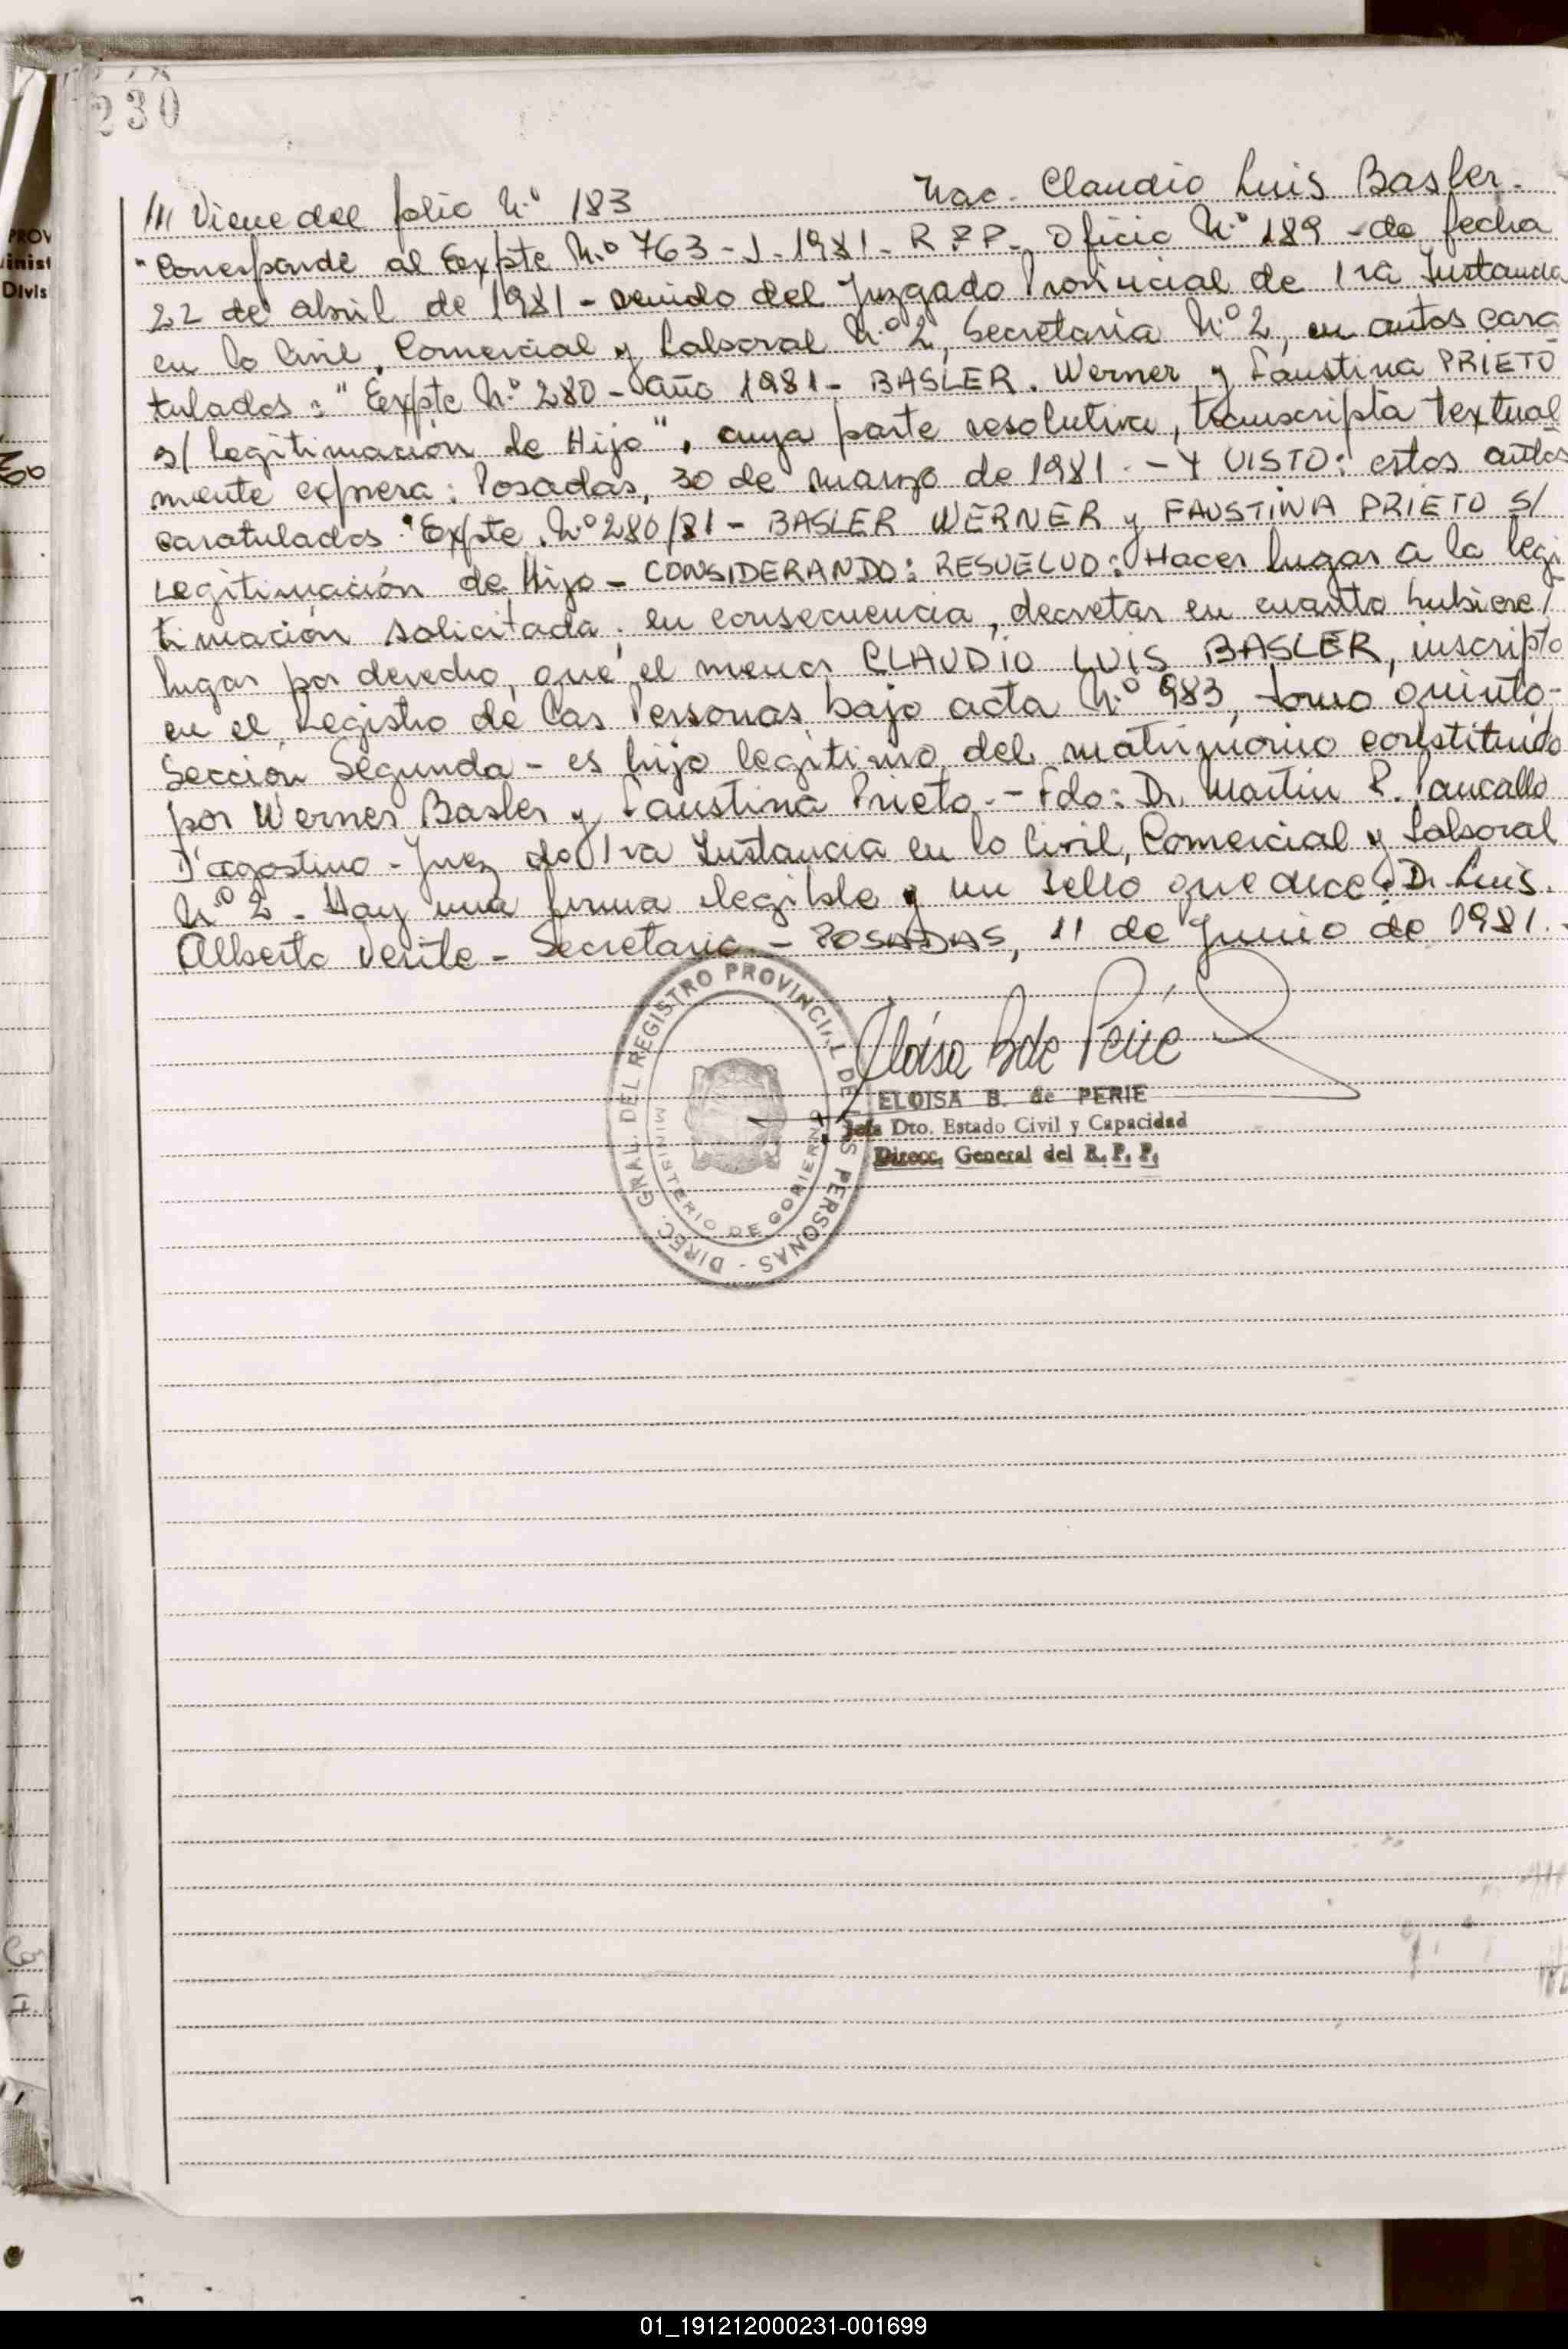 230
/// Viene del folio N.º 183 Nac. Claudio Luis Basler.
"Corresponde al Expte N.º 763-J-1981- R.P.P- Oficio N.º 189 - de fecha
22 de abril de 1981 - venido del Juzgado Provincial de 1ra Instancia
en lo Civil, Comercial y Laboral N.º 2, Secretaria N.º 2, en autos cara
tulados: "Expte N.º 280 - año 1981 - BASLER. Werner y Faustina PRIETO
s/ legitimación de Hijo", cuya parte resolutiva, transcripta textual
mente expresa: Posadas, 30 de marzo de 1981. - Y VISTO: estos autos
caratulados "Expte. N.º 280/81 - BASLER WERNER y FAUSTINA PRIETO S/
Legitimación de Hijo - CONSIDERANDO: RESUELVO: Hacer lugar a la legi
timación solicitada; en consecuencia, decretar en cuanto hubiere/
lugar por derecho, que el menor CLAUDIO LUIS BASLER, inscripto
en el Registro de las Personas bajo acta N.º 983, tomo quinto-
Sección Segunda - es hijo legitimo del matrimonio constituido
por Werner Basler y Faustina Prieto. - Fdo: Dr. Martin R.
D'agostino - Juez de 1ra Instancia en lo Civil, Comercial y Laboral
N.º 2 - Hay una firma ilegible y un sello que dice: Dr. Luis
Alberto - Secretario. - POSADAS, 11 de Junio de 1981.-
Eloisa B de Perié
ELOISA B. de PERIE
Jefa Dto. Estado Civil y Capacidad
Direcc. General del R. P. P.
DIREC. GRAL. DEL REGISTRO PROVINCIAL DE LAS PERSONAS -
MINISTERIO DE GOBIERNO
PROV
inist
Divis
01_191212000231-001699